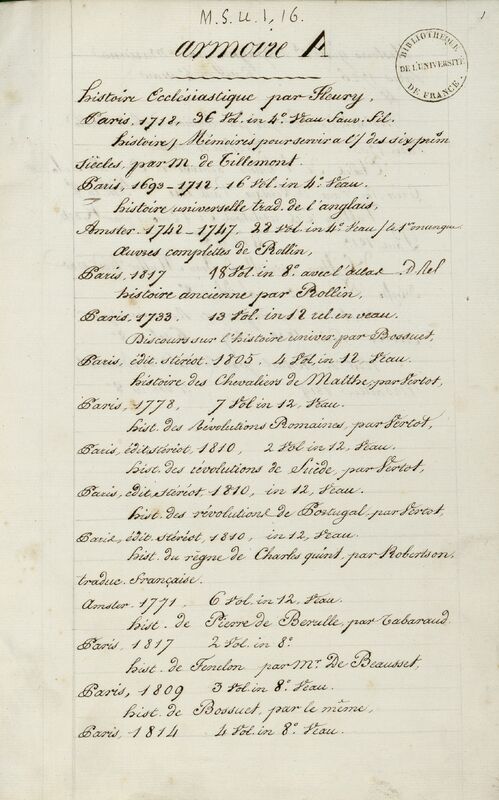 M.S.U.1,16.
1
armoire A
BIBLIOTHÈQUE
DE L'UNIVERSITÉ
DE FRANCE.
histoire Ecclésiastique par Fleury,
Paris, 1718, 36 Vol. in 4.° Veau Sauv. Fil.
histoire / Mémoires pour servir a l'/ des six prem
siècles, par m. de Tillemont.
Paris, 1693-1712, 16 Vol. in 4.° Veau.
histoire universelle trad. de l'anglais,
Amster. 1742-1747, 22 Vol. in 4.° Veau / le 1er manque
Œuvres complettes de Rollin,
Paris, 1817 18 Vol in 8.° avec l'atlas D. Rel
histoire ancienne par Rollin,
Paris, 1733. 13 Vol. in 12 rel en veau.
Discours sur l'histoire univer. par Bossuet,
Paris, édit. stéréot. 1805, 4 Vol, in 12, Veau.
histoire des Chevaliers de Malthe, par Vertot,
Paris, 1778, 7 Vol. in 12, Veau.
hist. des Révolutions Romaines, par Vertot,
Paris, édit stéréot, 1810, 2 Vol in 12, Veau,
hist. des révolutions de Suède, par Vertot,
Paris, édit. stéréot, 1810, in 12, Veau.
hist. des révolutions de Portugal, par Vertot,
Paris, édit. stéréot, 1810, in 12, Veau.
hist. du règne de Charles quint, par Robertson,
traduc. française.
Amster. 1771, 6 Vol. in 12, Veau.
hist. de Pierre de Berulle, par Tabaraud
Paris, 1817 2 Vol. in 8.°
hist. de Fenelon par Mr. De Beausset,
Paris, 1809 3 Vol. in 8.° Veau.
hist. de Bossuet, par le même,
Paris, 1814 4 Vol. in 8.° Veau.